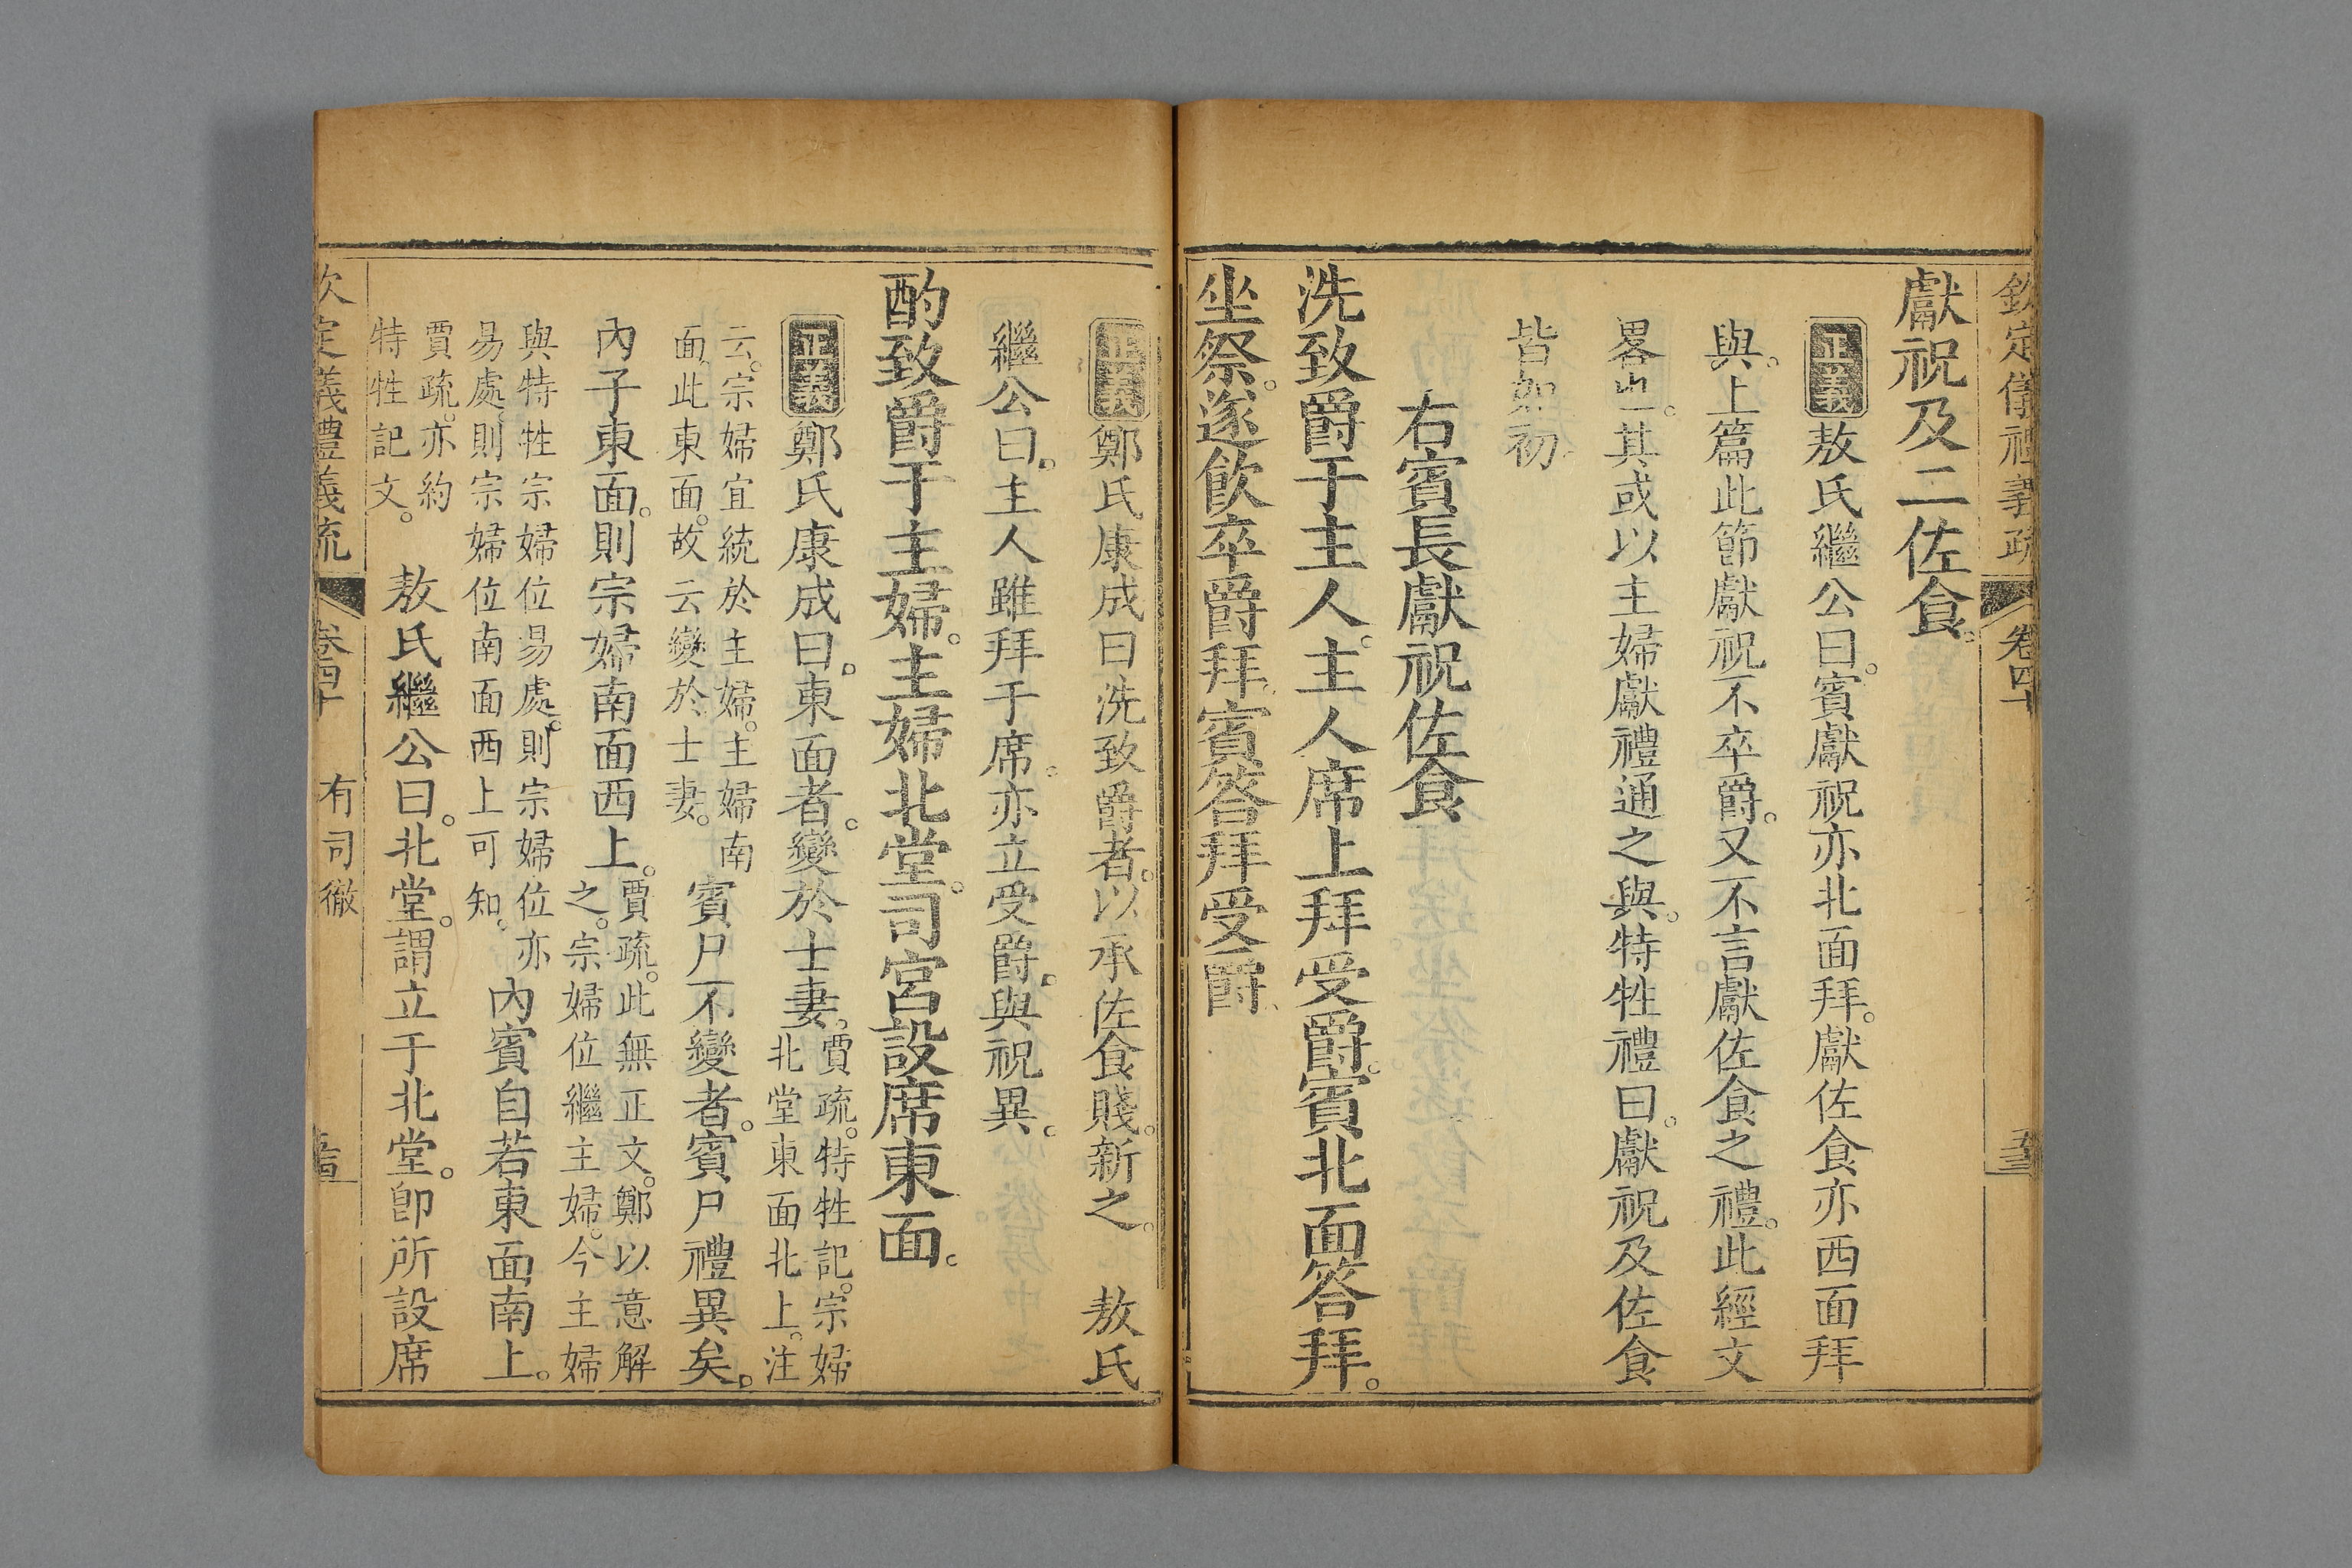 欽定儀禮義疏 卷四十
獻祝及二佐食。
正義敖氏繼公曰。賓獻祝亦北面拜。獻佐食亦西面拜
與。上篇此節獻祝不卒爵。又不言獻佐食之禮。此經文
畧也。其或以主婦獻禮通之與。特牲禮曰。獻祝及佐食
皆如初。
右賓長獻祝佐食
洗致爵于主人。主人席上拜受爵。賓北面答拜。
坐祭。遂飲卒爵拜。賓答拜受爵
正義鄭氏康成曰洗致爵者。以承佐食賤。新之。 敖氏
繼公曰。主人雖拜于席。亦立受爵。與祝異。
酌致爵于主婦。主婦北堂。司宮設席東面。
正義鄭氏康成曰。東面者。變於士妻。賈疏。特牲記。宗婦
北堂東面北上。注
云。宗婦宜統於主婦。主婦南
面。此東面。故云變於士妻。賓尸不變者。賓尸禮異矣。
內子東面。則宗婦南面西上。賈疏。此無正文。鄭以意解
之。宗婦位繼主婦。今主婦
與特牲宗婦位易處。則宗婦位亦
易處。則宗婦位南面西上可知。內賓自若東面南上。
賈疏。亦約
特牲記文。 敖氏繼公曰。北堂。謂立于北堂。卽所設席
欽定義禮義疏 卷四十 有司徹